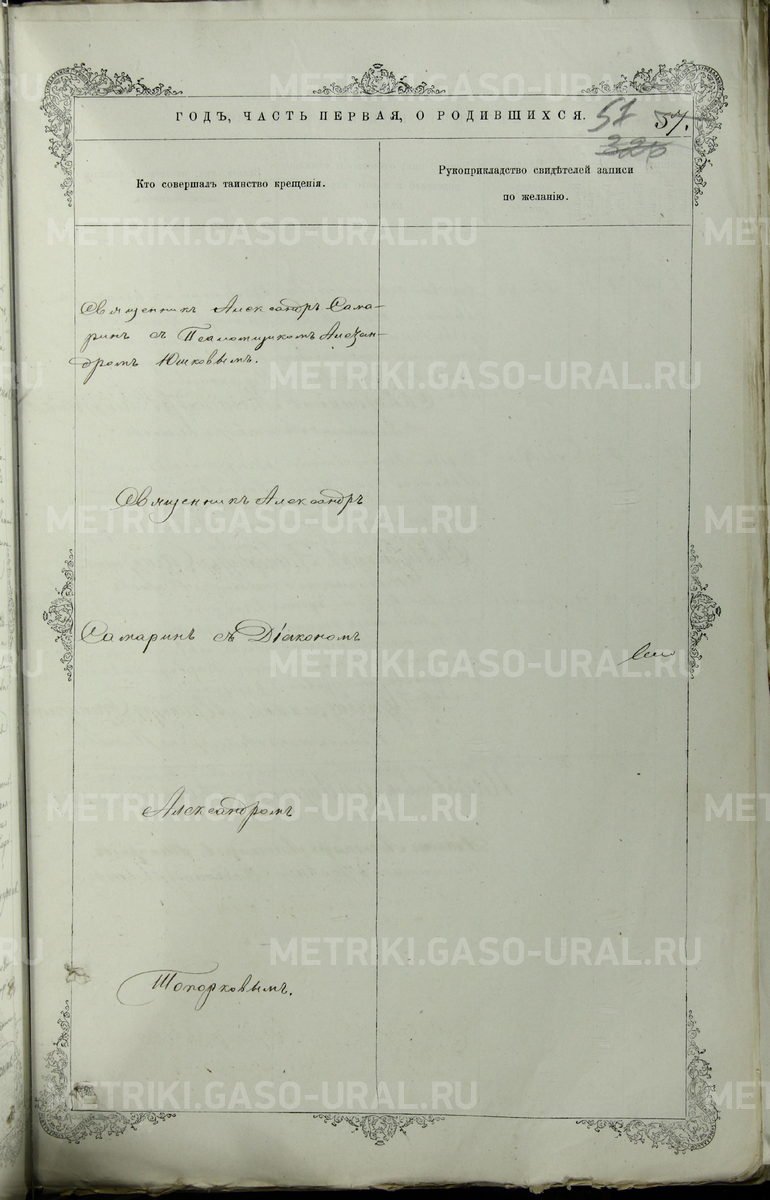 ГОДЪ, ЧАСТЬ ПЕРВАЯ, О РОДИВШИХСЯ.
57 57.
326
Кто совершалъ таинство крещенія.
Рукоприкладство свидѣтелей записи
по желанію.
Священникъ Александръ Сама-
ринъ съ Псаломщикомъ Алексан-
дромъ Юшковымъ.
Священникъ Александръ
Самаринъ съ Діакономъ
Александромъ
Топорковымъ.
METRIKI.GASO-URAL.RU